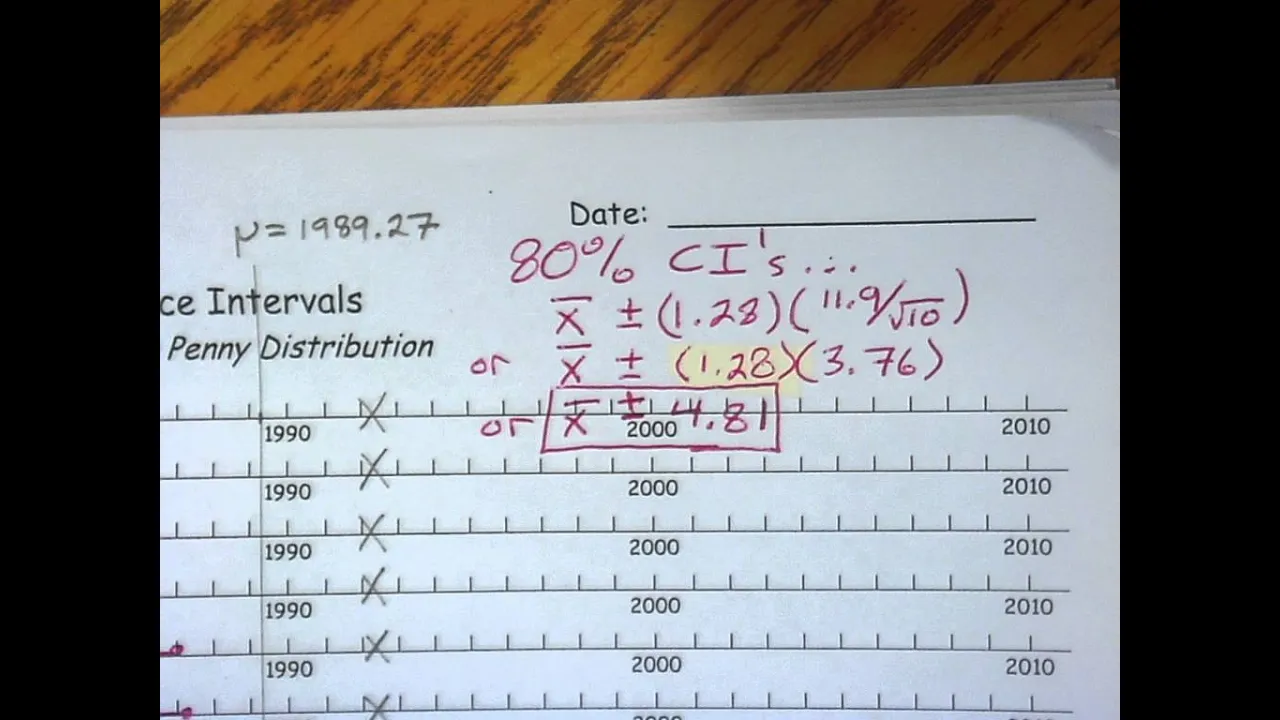 Date:
μ = 1989.27
80% CI's...
ce Intervals
x̄ ± (1.28)(11.9/√10)
Penny Distribution
or x̄ ± (1.28)(3.76)
or x̄ ± 4.81
1990 2000 2010
1990 2000 2010
1990 2000 2010
1990 2000 2010
1990 2000 2010